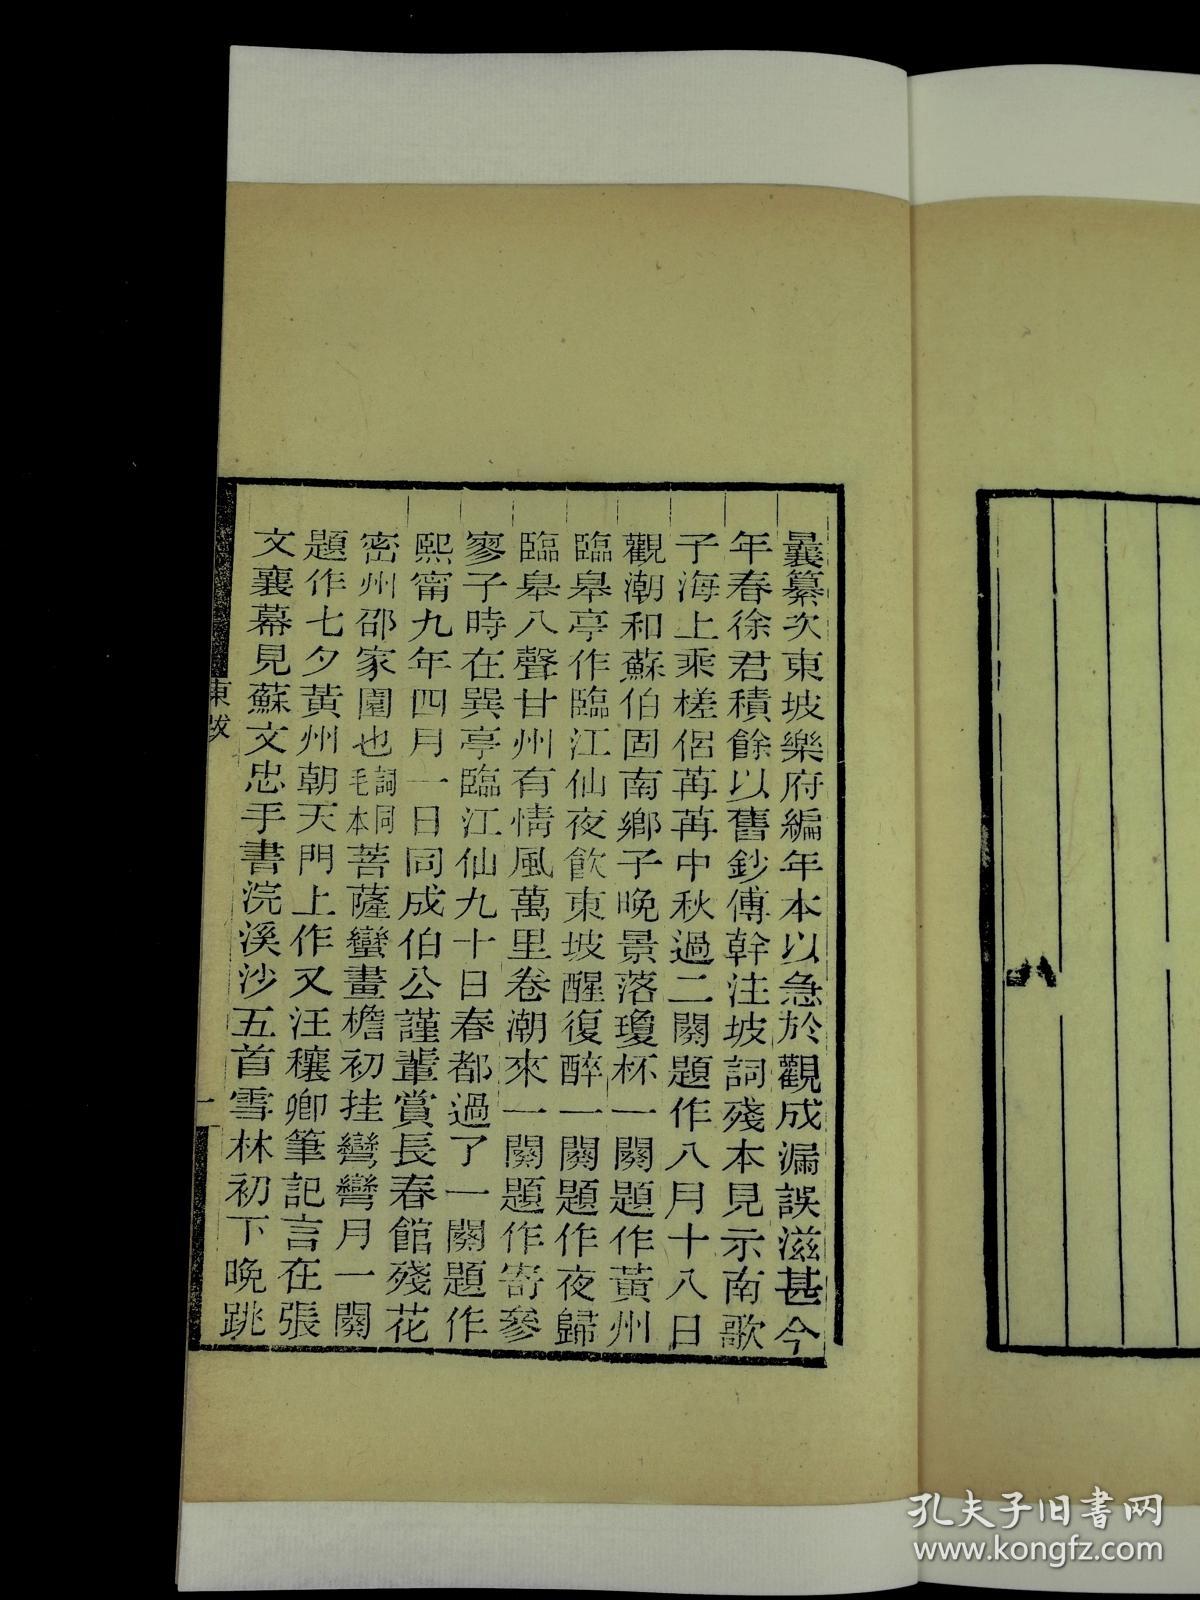 曩纂次東坡樂府編年本以急於觀成漏誤滋甚今
年春徐君積餘以舊鈔傅幹注坡詞殘本見示南歌
子海上乘槎侶苒苒中秋過二闋題作八月十八日
觀潮和蘇伯固南鄉子晚景落瓊杯一闋題作黃州
臨皋亭作臨江仙夜飲東坡醒復醉一闋題作夜歸
臨皋八聲甘州有情風萬里卷潮來一闋題作寄參
寥子時在巽亭臨江仙九十日春都過了一闋題作
熙甯九年四月一日同成伯公謹輩賞長春館殘花
密州邵家園也毛本詞同菩薩蠻畫檐初挂彎彎月一闋
題作七夕黃州朝天門上作又汪穰卿筆記言在張
文襄幕見蘇文忠手書浣溪沙五首雪林初下晚跳
東坡
一
孔夫子旧书网
www.kongfz.com